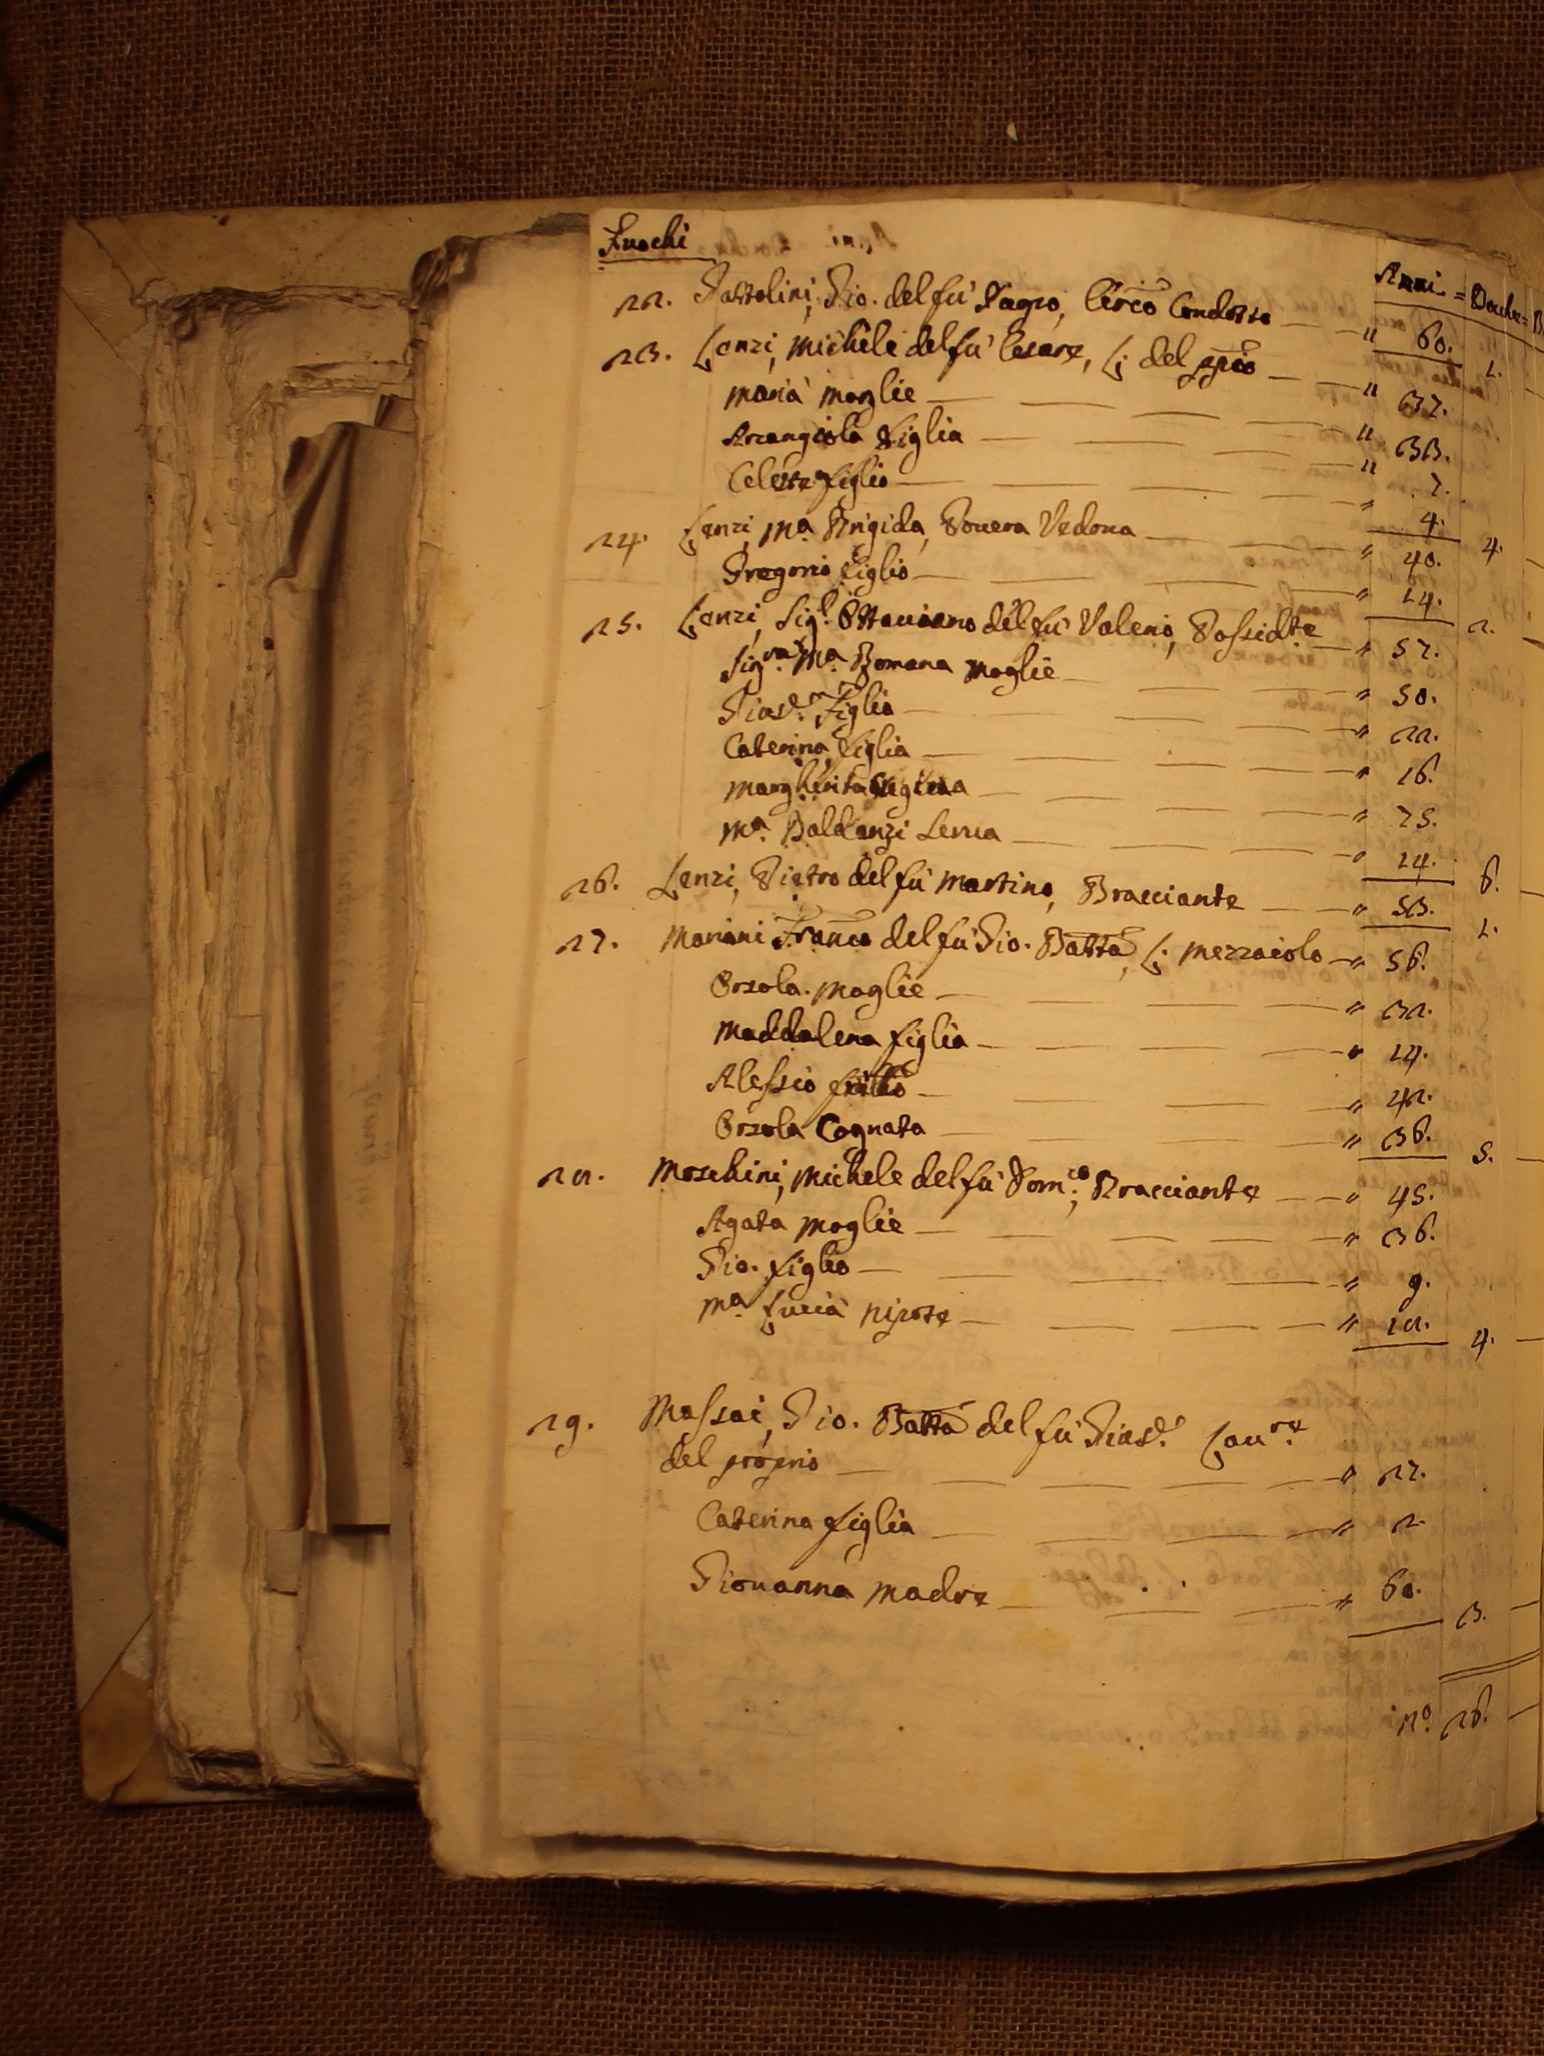 Fuochi
Anni = Bocche =
22. Gio. del fu Cerco Condotto " 60. 1.
23. Lenzi, Michele del fu Cesare, L: del pprio " 37.
Maria moglie " 33.
Arcangiola figlia " 7.
Celeste figlio " 4. 4.
24. Lenzi, Ma Brigida, Povera Vedova " 40.
Gregorio figlio " 14. 2.
25. Lenzi, Sigr. Ottaviano del fu Valerio, Possidte " 57.
Sigra. Ma Romana moglie " 50.
Figlio " 22.
Caterina figlia " 16.
Margherita " 75.
Ma. Baldanzi serva " 14. 6.
26. Lenzi, Pietro del fu Martino, Bracciante " 53. 1.
27. Mariani Franco del fu Gio. Batta, L: mezzaiolo " 56.
Orsola moglie " 32.
Maddalena figlia " 14.
Alessio frello " 42.
Orsola Cognata " 36. 5.
28. Moschini, Michele del fu Domco; Bracciante " 45.
Agata moglie " 36.
Gio. figlio " 9.
Ma Lucia nipote " 18. 4.
29. Massai, Gio. Batta del fu Lavre.
del proprio " 27.
Caterina figlia " 2.
Giovanna madre " 60. 3.
No. 26.